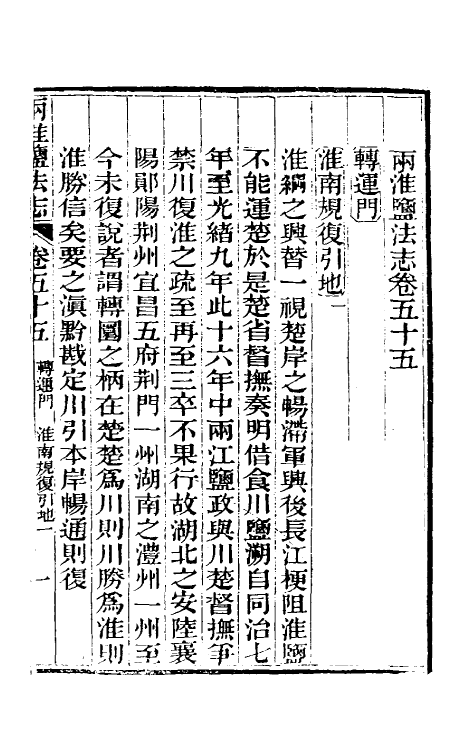 兩淮鹽法志卷五十五
轉運門
淮南規復引地一
淮綱之興替一視楚岸之暢滯軍興後長江梗阻淮鹽
不能運楚於是楚省督撫奏明借食川鹽溯自同治七
年至光緒九年此十六年中兩江鹽政與川楚督撫爭
禁川復淮之疏至再至三卒不果行故湖北之安陸襄
陽鄖陽荆州宜昌五府荆門一州湖南之澧州一州至
今未復說者謂轉圜之柄在楚楚爲川則川勝爲淮則
淮勝信矣要之滇黔戡定川引本岸暢通則復
兩淮鹽法志 卷五十五 轉運門 淮南規復引地一 一